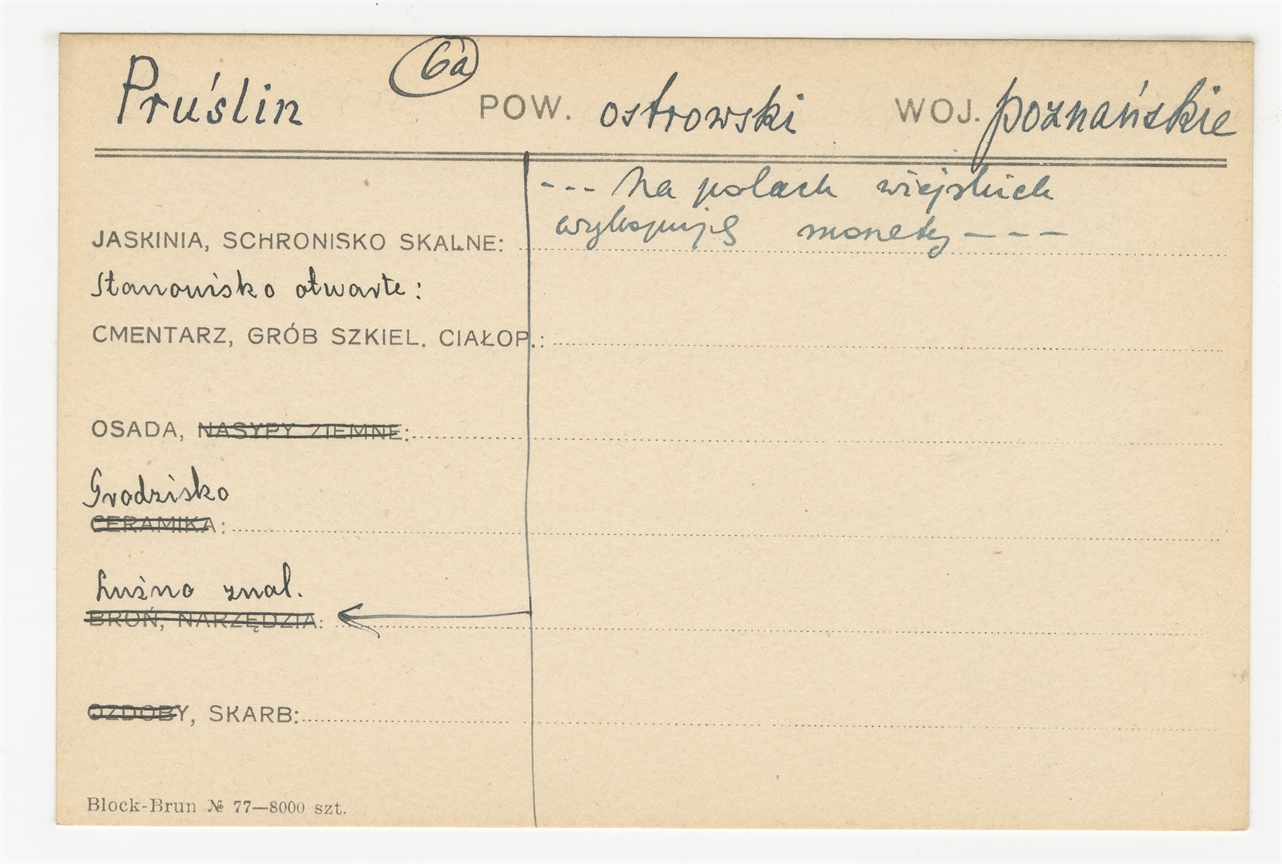 6a
Pruślin POW. ostrowski WOJ. poznańskie
--- Na polach wiejskich
wykopują monety ---
JASKINIA, SCHRONISKO SKALNE:
Stanowisko otwarte:
CMENTARZ, GRÓB SZKIEL. CIAŁOP.:
OSADA, NASYPY ZIEMNE:
Grodzisko
CERAMIKA:
Luźno znal.
BROŃ, NARZĘDZIA:
OZDOBY, SKARB:
Block-Brun № 77—8000 szt.